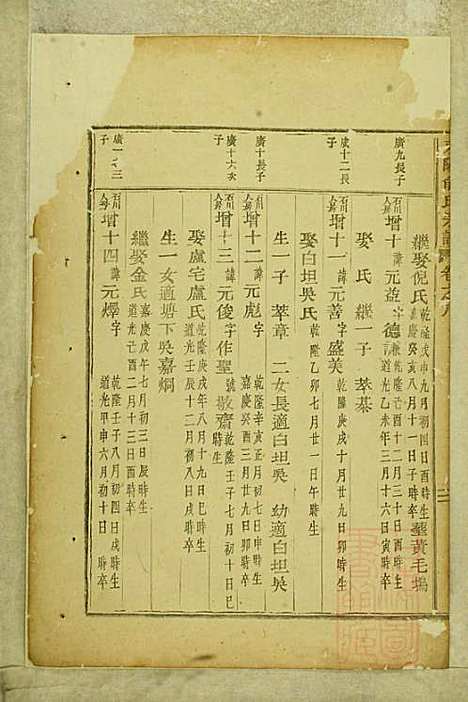 俞氏宗譜 卷之
繼娶倪氏 乾隆戊申九月初四日酉時生 嘉慶癸亥八月十一日子時卒 葬黃毛塢
廣九長子
增十 諱元益 字德 乾隆 十二月三十日酉時生 道光乙未年三月十六日寅時卒
娶 氏 繼一子 萃棊
廣十二長子
增十一 諱元善 字盛美 乾隆庚戌十月廿九日卯時生 時卒
娶白坦吳氏 乾隆乙卯七月廿一日午時生
生一子 萃章 二女長適白坦吳 幼適白坦吳
廣十長子
增十二 諱元彪 字 乾隆辛亥正月初七日申時生 嘉慶癸酉三月廿九日卯時卒
廣十六次子
增十三 諱元俊 字作聖 號敬齋 乾隆壬子七月初十日巳時生
娶盧宅盧氏 乾隆庚戌年八月十九日巳時生 道光壬辰十二月初八日戌時卒
生一女適塘下吳嘉炯
繼娶金氏 嘉慶戊午七月初三日辰時生 道光己酉二月十三日酉時卒
增十四 諱元燡 字 乾隆壬子八月初四日戌時生 道光甲申六月初十日 時卒